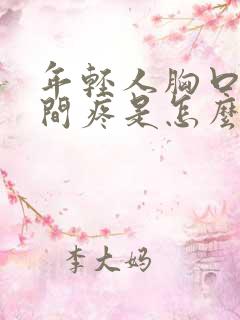 年轻人胸口
間疼是怎麼
李大妈